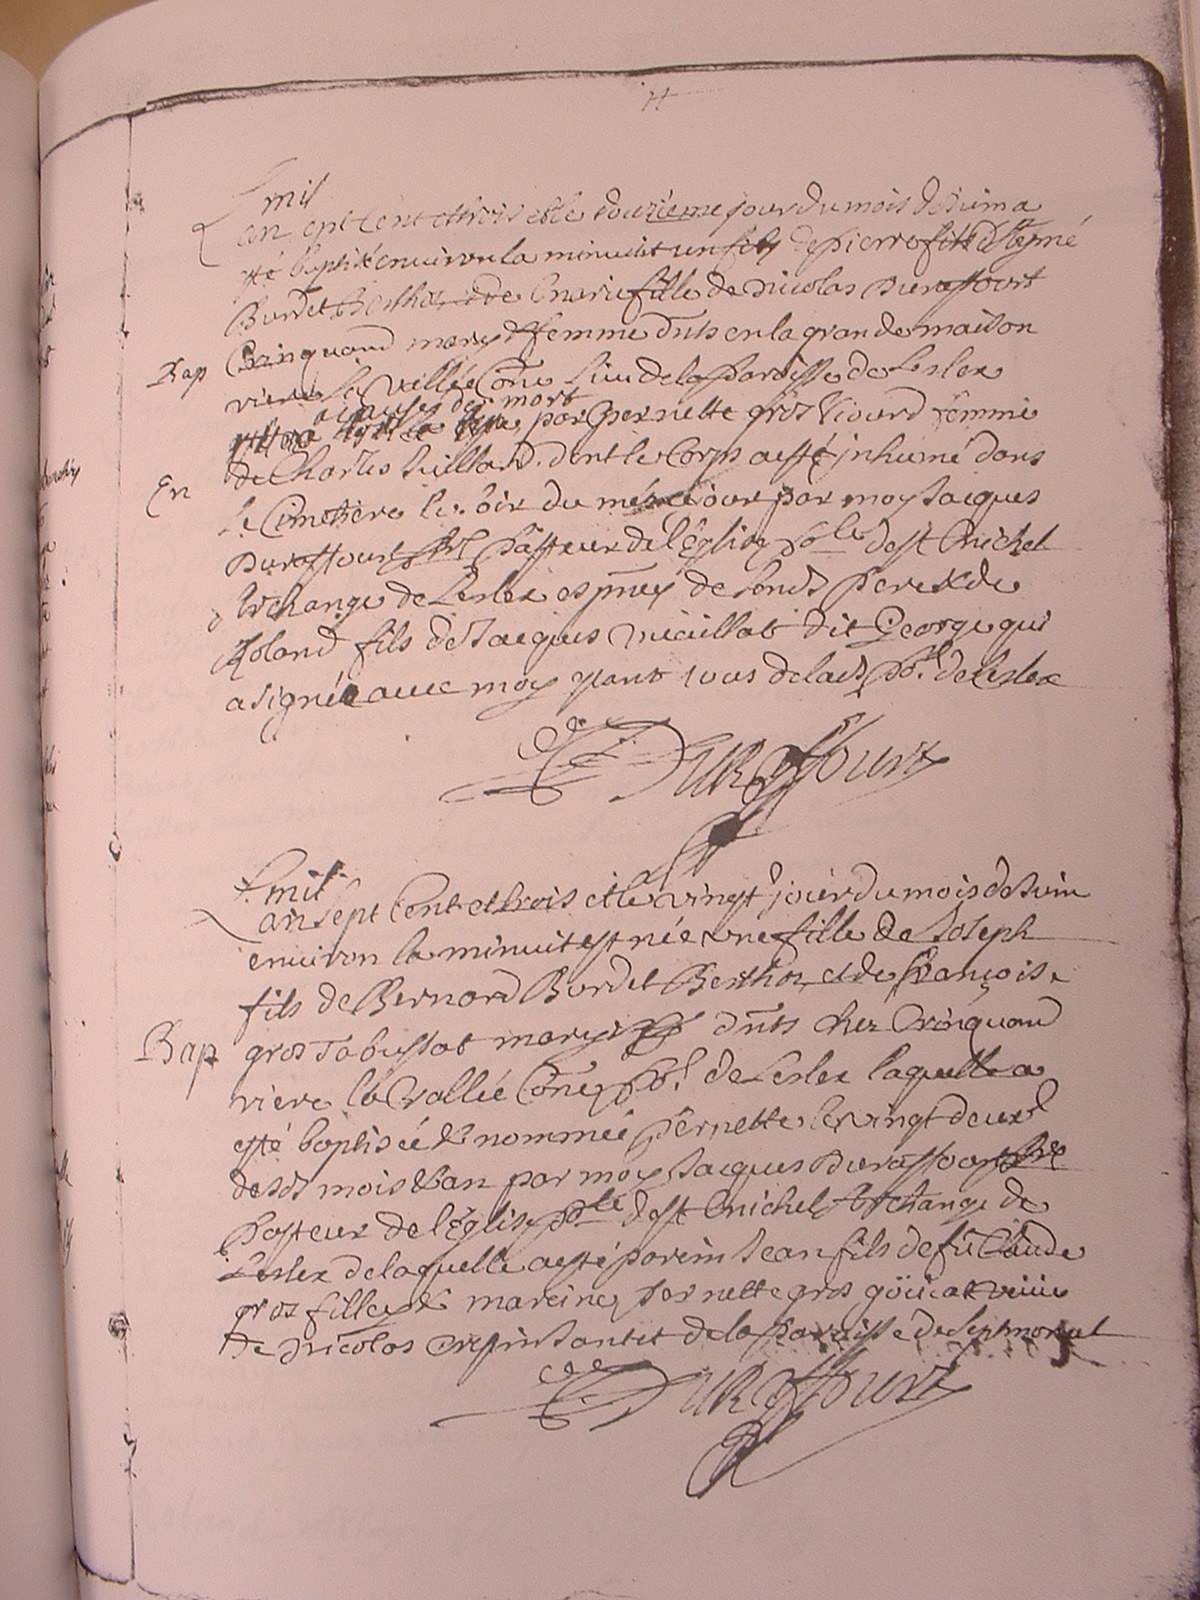 mil
L'an sept Cent et trois et le douzieme jour du mois de Juin a
esté baptisé environ la minuit un fils de pierre fils d'Esmé
Burdet Berthoz et de marie fille de Nicolas Duraffourt
Bap
Crinquand maryés femme dnts en la grande maison
viere la vallée Cõne lieu de la paroisse de Leslex
a cause de mort
par Pernette gros femme
de Charles Iuillard dont le Corps a esté inhumé dans
En
le Cimetiere le soir du mesme jour par moy Jacques
Duraffourt pbre pasteur de l'Eglise pble de st Michel
Archange de Leslex es pnces de pere & de
Roland fils de Jacques Meaillat dit George qui
a signé avec moy estant tous de lad pble de Leslex
Duraffourt
mil
L'an sept Cent et trois et le vingt jour du mois de Juin
environ la minuit est née une fille de Joseph
fils de Bernard Burdet Berthoz et de françoise
Bap
gros Tabussat maryés dnts chez Crinquand
viere la Vallée Cõne pble de Leslex laquelle a
esté baptisée & nommée Pernette le vingt deux
desd mois & an par moy Jacques Duraffourt pbre
Pasteur de l'Eglise pble de st Michel Archange de
Leslex de laquelle a esté parein Jean fils de fû Claude
groz filley & mareine Pernette gros goücat
de Nicolas de la paroisse de Septmoncel
Duraffourt